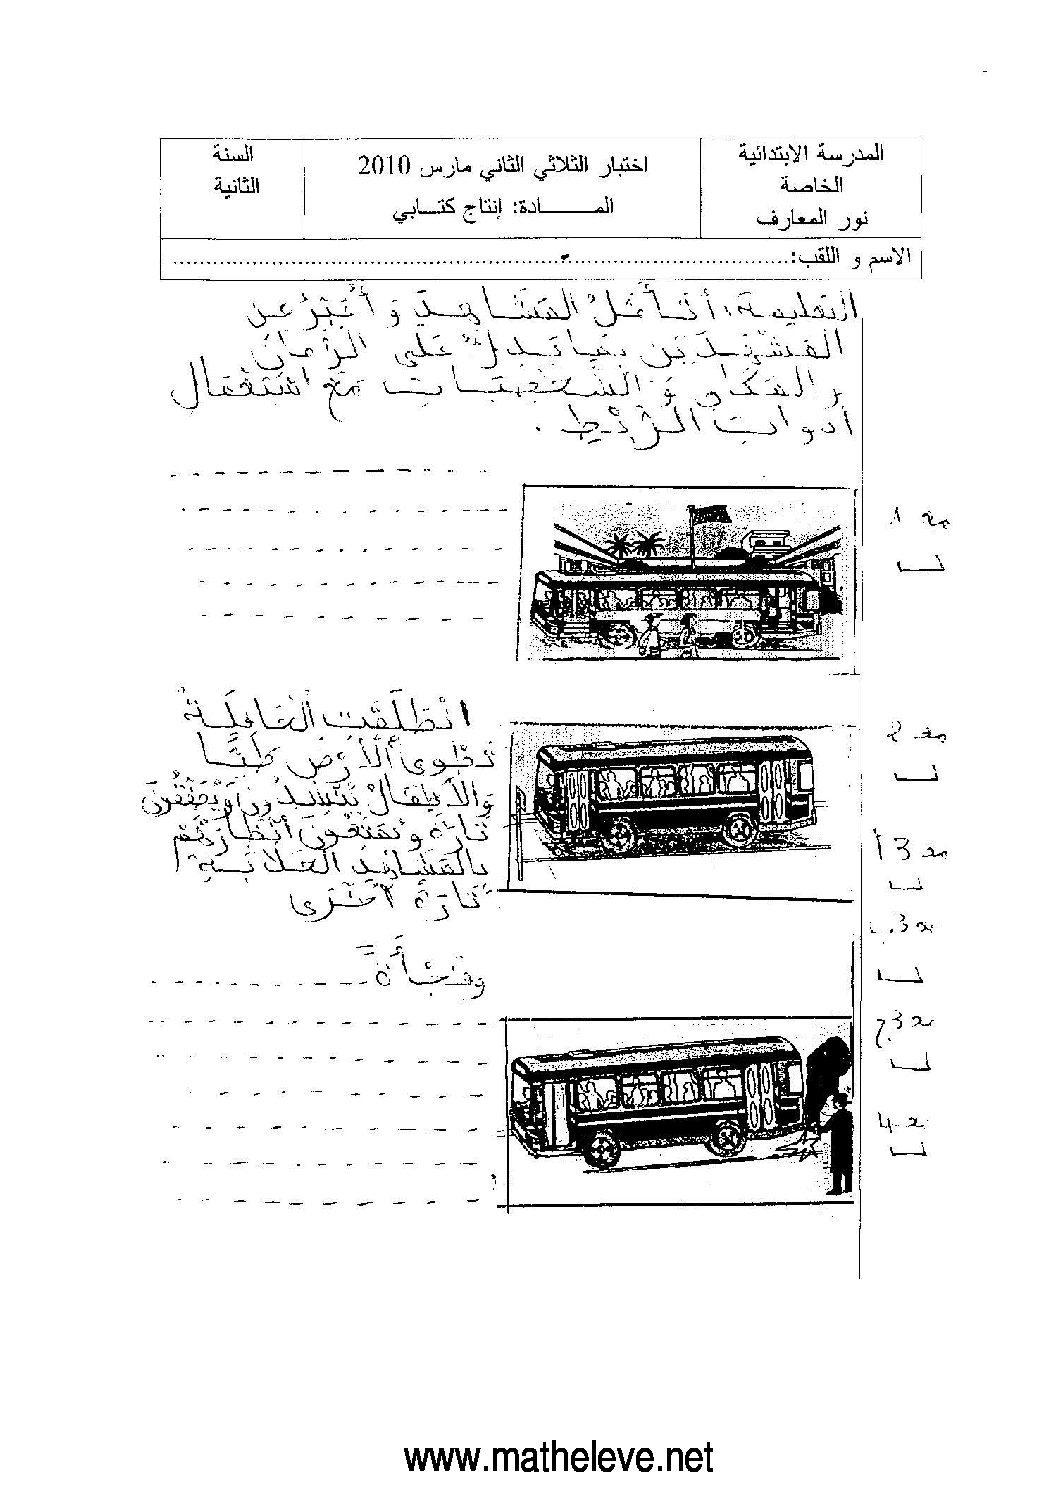 المدرسة الابتدائية
الخاصة
نور المعارف
اختبار الثلاثي الثاني مارس 2010
المـــــــادة: إنتاج كتـــابي
السنة
الثانية
الاسم و اللقب:
التعليمة: أتأمّلُ المشاهد و أعبّرُ عن
المشهدين بما يدلّ على الزمان
و المكان و الشخصيات مع استعمال
أدوات الرّبط.
مع 1
انْطَلَقَتِ الحَافِلَةُ
تَطْوِي الأَرْضَ طَيًّا
وَالأطفالُ يُنشدُونَ ويُصَفِّقُونَ
تارَةً ويُمَتِّعُونَ أنظارَهُم
بالمشاهد الخلابة
تَارَةً أُخْرَى
مع 2
مع 3 أ
مع 3 ب
وفَجْأَةً
مع 3 ج
مع 4
www.matheleve.net